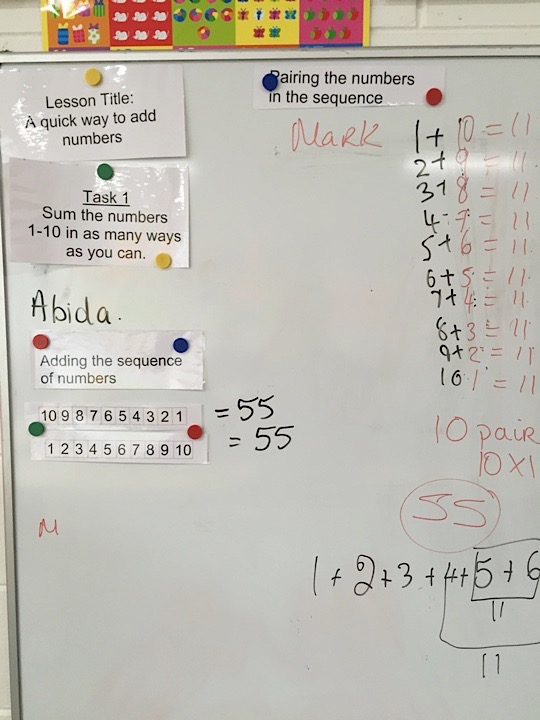 Lesson Title:
A quick way to add
numbers
Task 1
Sum the numbers
1-10 in as many ways
as you can.
Abida.
Adding the sequence
of numbers
10 9 8 7 6 5 4 3 2 1 = 55
1 2 3 4 5 6 7 8 9 10 = 55
M
Pairing the numbers
in the sequence
Mark
1+ 10 = 11
2+ 9 = 11
3+ 8 = 11
4- 7 = 11
5+ 6 = 11
6+ 5 = 11
7+ 4 = 11
8+3 = 11
9+2 = 11
10 1 = 11
10 pair
10X1
55
1 + 2 + 3 + 4 + 5 + 6
11
11